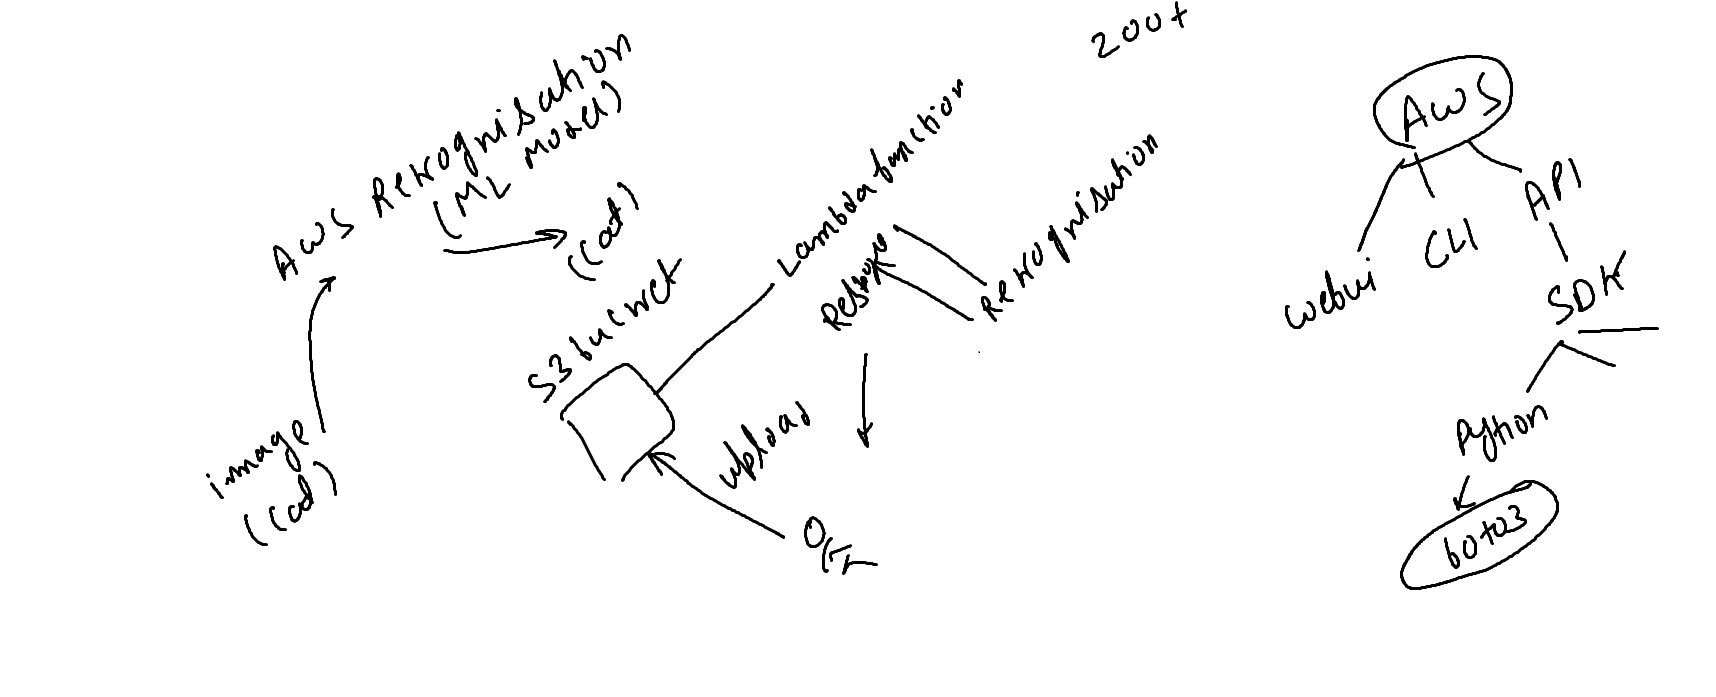 200+
AWS Rekognisation
(ML Model)
(cat)
image
(cat)
S3 bucket
Lambda function
Rekognisation
upload
AWS
webui
CLI
API
SDK
Python
boto3